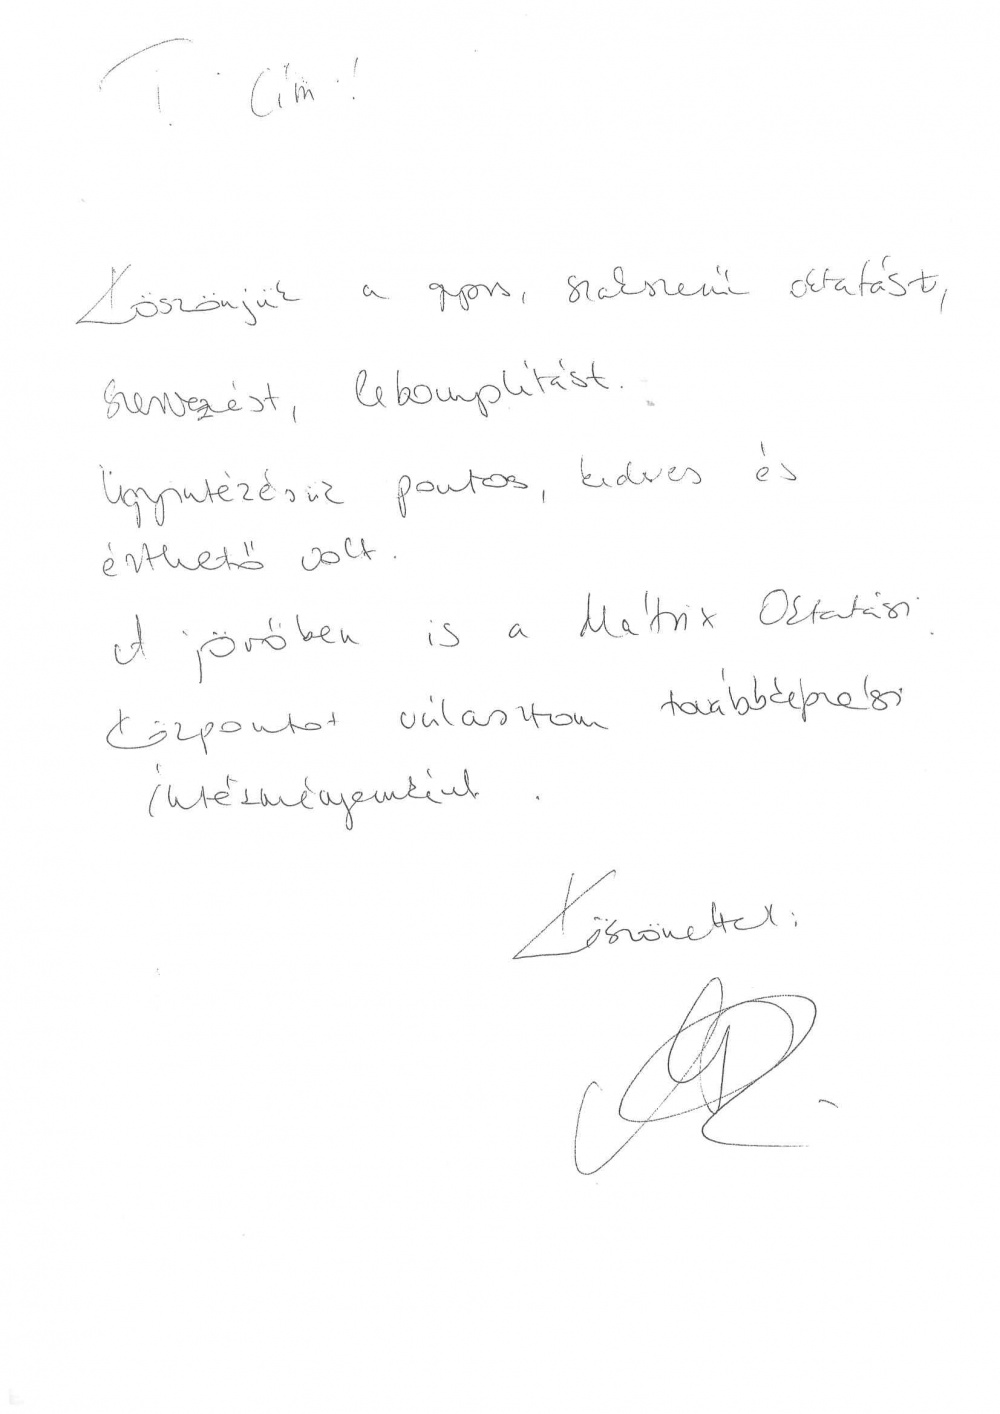 T. Cím!
Köszönjük a gyors, szakszerű oktatást,
szervezést, lebonyolítást.
Ügyintézésük pontos, kedves és
érthető volt.
A jövőben is a Mátrix Oktatási
Központot választom továbbképzési
intézményemként.
Köszönettel: